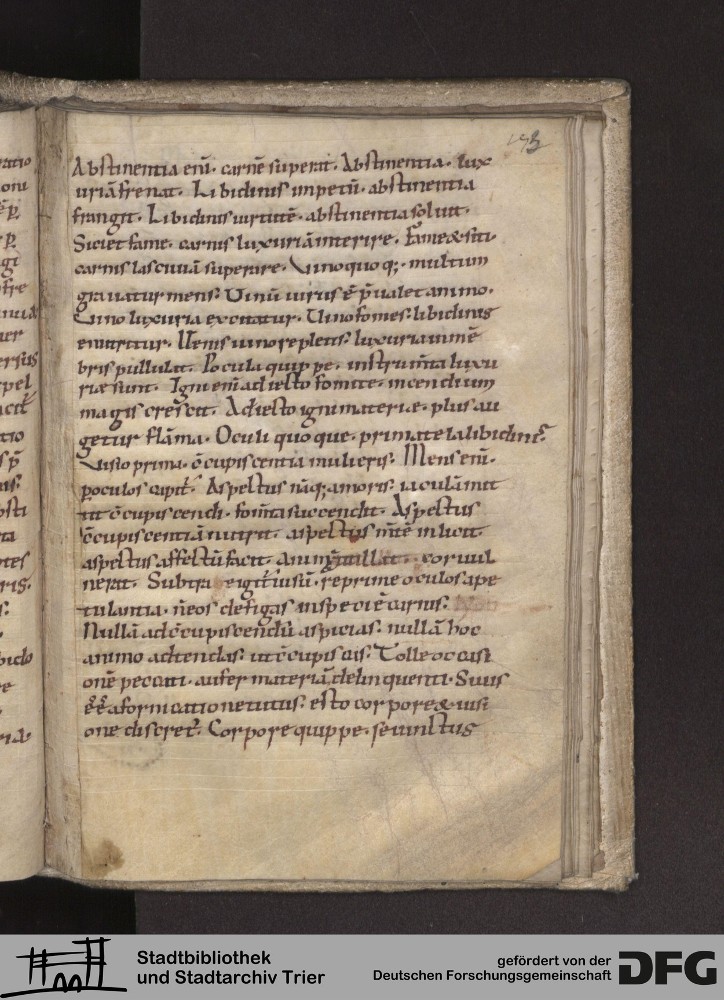 Abstinentia eni̅· carne̅ superat· Abstinentia· lux
uria̅ frenat· Libidinis impetu̅· abstinentia
frangit· Libidinis uirtute̅· abstinentia soluit·
Siti et fame· carnis luxuria̅ interire· Fame & siti·
carnis lasciuia̅ superare· Vino quoq;· multum
grauatur mens: Uinu̅ uirus e̅ p̅ualet animo·
Vino luxuria excitatur· Uino fomes: libidinis
enutritur· Uenis uino repletis: luxuria in me̅
bris pullulat· Pocula quippe· instrum̅ta luxu
riæ sunt· Igni eni̅ adiecto fomite· incendium
magis crescit· Adiecto igni materiæ· plus au
getur fla̅ma· Oculi quoque· prima tela libidinis:
Uisio prima· c̅cupiscentia mulieris: Mens eni̅·
p oculos capit᷑· Aspectus na̅q; amoris: iacula̅ mit
tit c̅cupiscendi· fom̅ta succendit· Aspectus
c̅cupiscentia̅ nutrit· aspectus m̅te̅ inlicit·
aspectus affectu̅ facit· cor uul
nerat· Subtra uisu̅· reprime oculos a pe
tulantia· n̅ eos defigas in specie̅ carnis:
Nulla̅ ad c̅cupiscendu̅ aspicias: nulla̅ hoc
animo adtendas: ut c̅cupiscas: Tolle occasi
one̅ peccati· aufer materia̅ delinquenti· Si uis
e̅e̅ a fornicatione tutus: esto corpore & uisi
one discret᷑· Corpore quippe· seiunctus
Stadtbibliothek
und Stadtarchiv Trier
gefördert von der
Deutschen Forschungsgemeinschaft
DFG